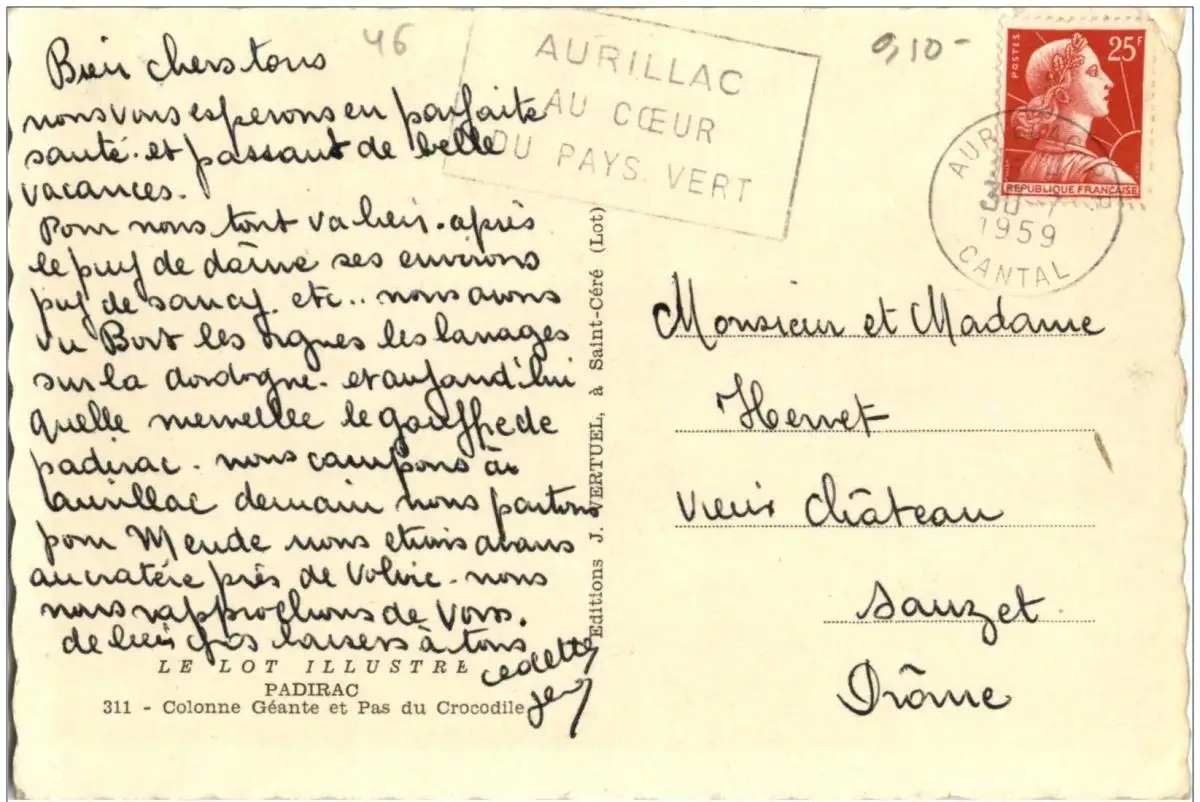 46
9,10-
AURILLAC
AU CŒUR
DU PAYS VERT
POSTES
25F
REPUBLIQUE FRANÇAISE
AURILLAC
30 - 7
1959
CANTAL
Bien chers tous
nous vous esperons en parfaite
santé. et passant de belle
vacances.
Pour nous tout va bein. après
le puy de dôme ses environs
puy de sancy. etc.. nous avons
vu Bort les orgues les barrages
sur la dordogne. et aujourd'hui
quelle merveille le gouffre de
padirac. nous campons à
aurillac demain nous partons
pour Mende nous
au cratère près de Volvic. nous
nous rapprochons de Vous.
de bien gros baisers à tous
LE LOT ILLUSTRE
PADIRAC
311 - Colonne Géante et Pas du Crocodile
Editions J. VERTUEL, à Saint-Céré (Lot)
Monsieur et Madame
vieux château
Sauzet
Drôme